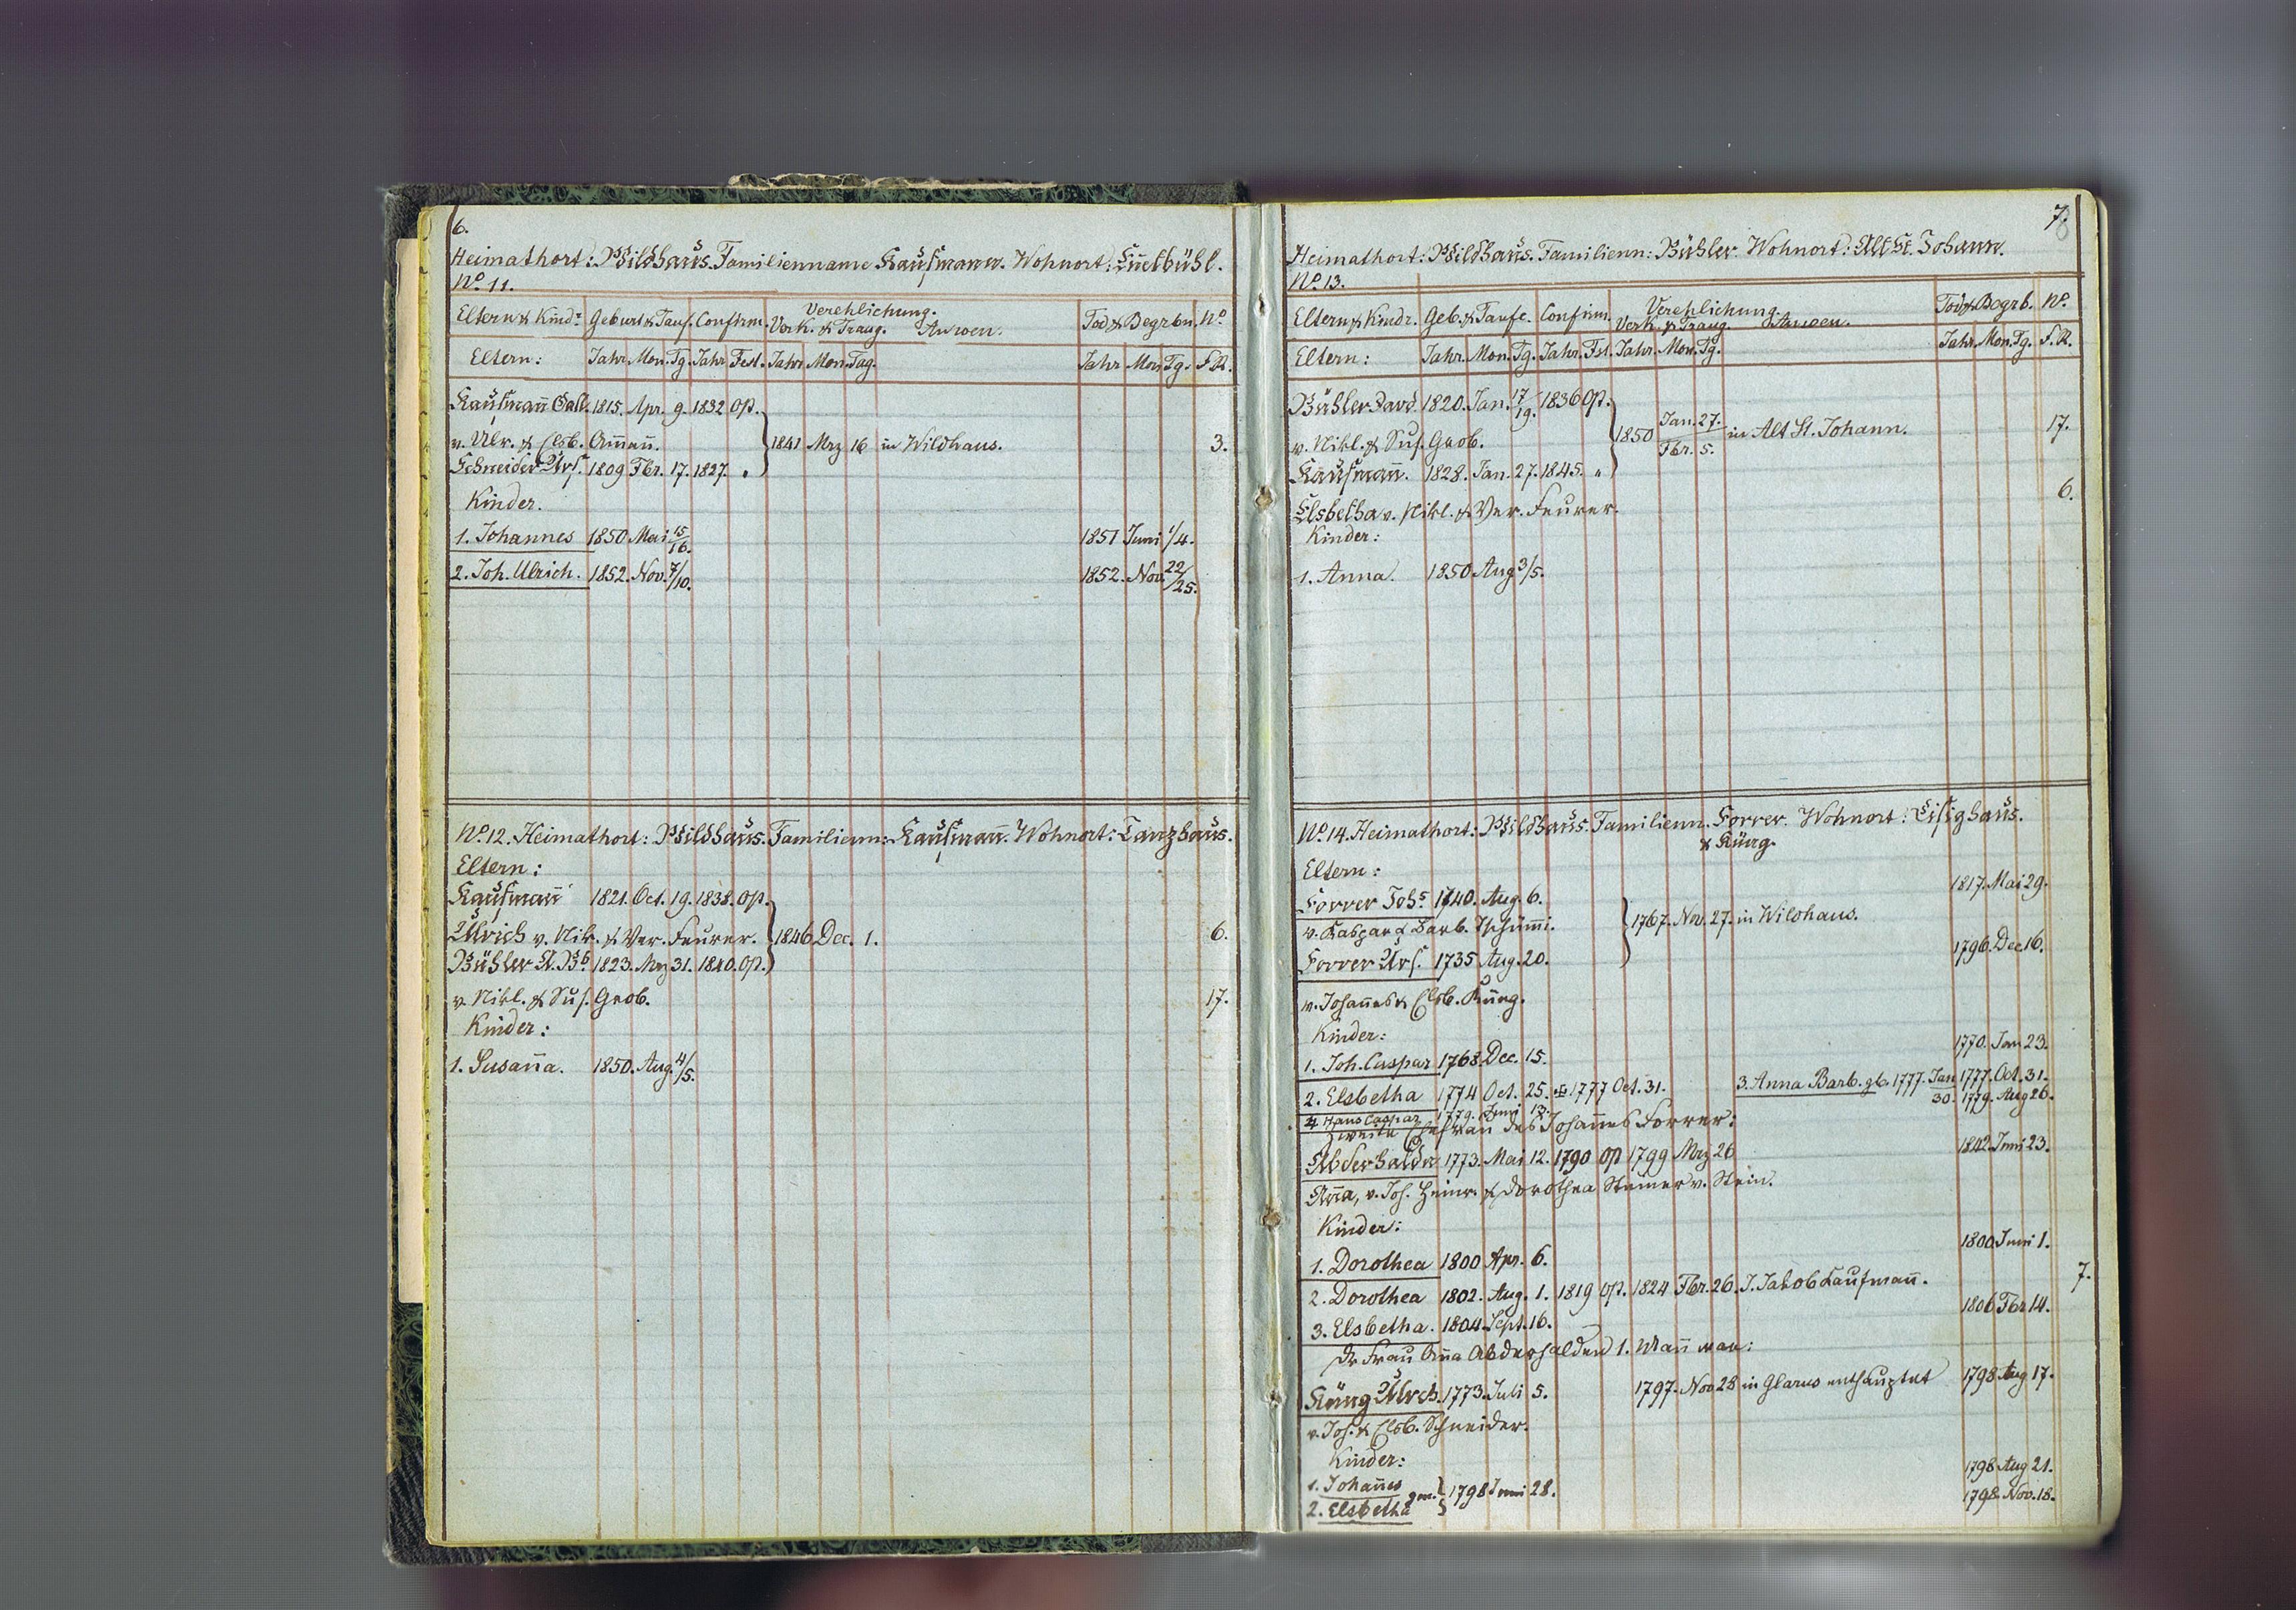 6.
Heimathort: Wildhaus. Familienname Kaufmann. Wohnort:
No. 11.
Eltern & Kindr. Geburt & Tauf. Confirm. Verehlichung. Verk. & Traug. Anwen. Tod & Begrbn. No.
Eltern: Jahr. Mon. Tg. Jahr Fest. Jahr Mon. Tag. Jahr Mon Tg. F.R.
Kaufmann̄ Gall. 1815. Apr. 9. 1832 Op.
v. Ulr. & Elsb. Am̄an̄. 1841 Mrz 16 in Wildhaus. 3.
Schneider Urs. 1809 Fbr. 17. 1827. "
Kinder.
1. Johannes 1850 Mai 15/16. 1851 Juni 1/4.
2. Joh. Ulrich. 1852. Nov. 7/10. 1852. Nov. 22/25.
No. 12. Heimathort: Wildhaus. Familienn: Kaufman̄. Wohnort: Tanzhaus.
Eltern:
Kaufman̄ 1821. Oct. 19. 1838. Op.
Ulrich v. Nik. & Ver. Feurer. 1846 Dec. 1. 6.
Bühler A. Bb. 1823. Mrz 31. 1840. Op.
v. Nikl. & Sus. Grob. 17.
Kinder:
1. Susan̄a. 1850. Aug. 4/5.
7.
8
Heimathort: Wildhaus. Familienn: Bühler. Wohnort: Alt St. Johann.
No. 13.
Eltern & Kindr. Geb. & Taufe. Confirm. Verehlichung. Verk. & Traug. Anwen. Tod & Begrb. No.
Eltern: Jahr. Mon. Tg. Jahr. Fst. Jahr. Mon. Tg. Jahr. Mon. Tg. F.R.
Bühler Davd. 1820. Jan. 17/19. 1836 Op.
v. Nikl. & Sus. Grob. 1850 Jan. 27. / Fbr. 5. in Alt St. Johann. 17.
Kaufman̄. 1828. Jan. 27. 1845. "
Elsbetha v. Nikl. & Ver. Feurer. 6.
Kinder:
1. Anna. 1850 Aug 3/5.
No. 14. Heimathort: Wildhaus. Familienn. Forrer. Wohnort: Lisighaus.
& Küng.
Eltern:
Forrer Johs. 1740. Aug. 6. 1817. Mai 29.
v. Kaspar & Barb. Tschüm̄i. 1767. Nov. 27. in Wildhaus.
Forrer Urs. 1735 Aug. 20. 1796. Dec 16.
v. Johan̄es & Elsb. Küng.
Kinder:
1. Joh. Caspar 1768. Dec. 15. 1770. Jan 23.
2. Elsbetha 1774 Oct. 25. 1777 Oct. 31. 3. Anna Barb. gb. 1777. Jan 30. 1777. Oct. 31.
4 Hans Caspar 1779. Juni 13. 1779. Aug 26.
Zweite Ehefrau des Johan̄es Forrer:
Abderhaldn 1773. Mai 12. 1790 Op 1799 Mrz 26 1842. Juni 23.
An̄a, v. Joh. Heinr. & Dorothea Steiner v. Stein.
Kinder:
1. Dorothea 1800 Apr. 6. 1800 Juni 1.
2. Dorothea 1802. Aug. 1. 1819 Op. 1824 Fbr. 26. J. Jakob Kaufman̄. 7.
3. Elsbetha. 1804. Sept. 16. 1806 Fbr 14.
Dr Frau An̄a Abderhalden 1. Man̄ war:
Küng Ulrch. 1773. Juli 5. 1797. Nov 28 in Glarus enthauptet 1798 Aug 17.
v. Joh. & Elsb. Schneider.
Kinder:
1. Johan̄es gem. 1798 Juni 28. 1798 Aug 21.
2. Elsbetha 1798. Nov. 18.